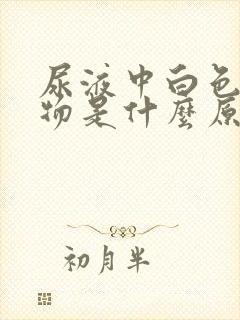 尿液中白色
物是什麼原
初月半